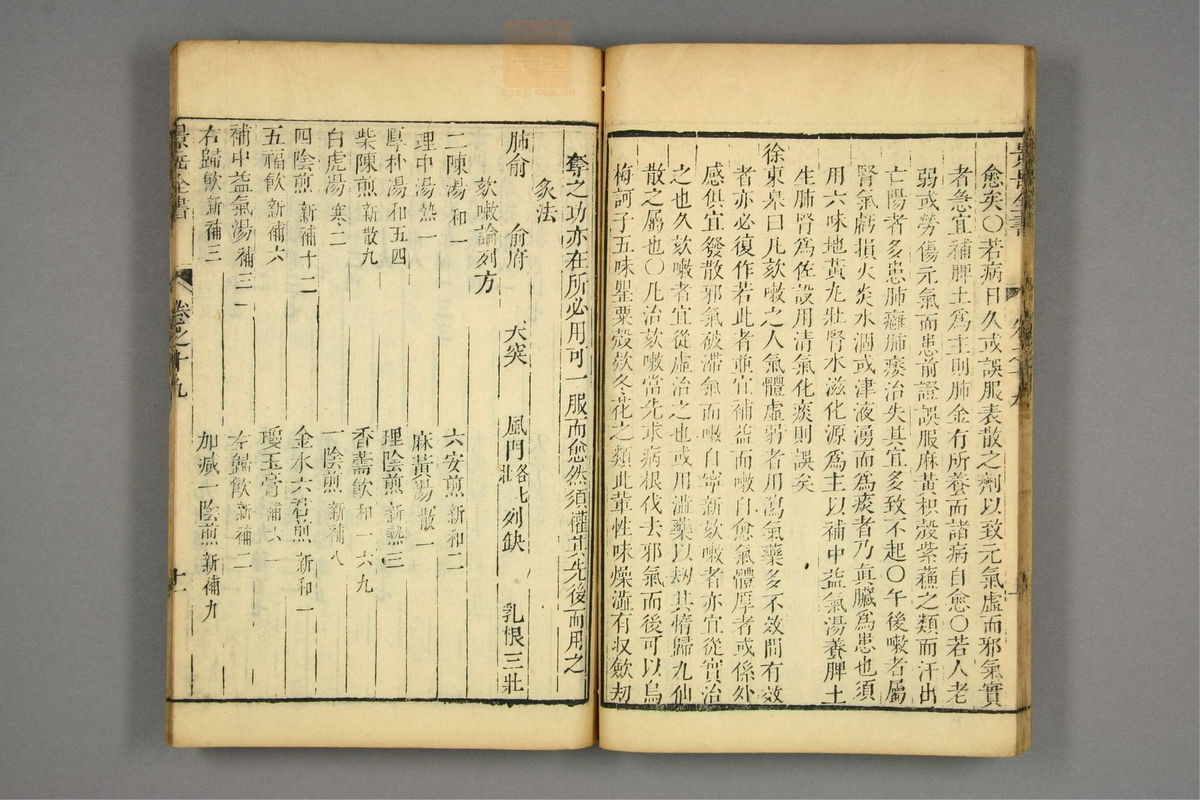 愈矣〇若病日久或誤服表散之劑以致元氣虛而邪氣實
者急宜補脾土爲主則肺金有所養而諸病自愈〇若人老
弱或勞傷元氣而患前證誤服麻黃枳殼紫蘇之類而汗出
亡陽者多患肺癰肺痿治失其宜多致不起〇午後嗽者屬
腎氣虧損火炎水涸或津液湧而爲痰者乃眞臟爲患也須
用六味地黃丸壯腎水滋化源爲主以補中益氣湯養脾土
生肺腎爲佐設用清氣化痰則誤矣
徐東皋曰凡欬嗽之人氣體虛弱者用瀉氣藥多不效間有效
者亦必復作若此者並宜補益而嗽自愈氣體厚者或係外
感俱宜發散邪氣破滯氣而嗽自寧新欬嗽者亦宜從實治
之也久欬嗽者宜從虛治之也或用澁藥以劫其惰歸九仙
散之屬也〇凡治欬嗽當先求病根伐去邪氣而後可以烏
梅訶子五味罌粟殼欵冬花之類此輩性味燥澁有収歛刼
奪之功亦在所必用可一服而愈然須權其先後而用之
灸法
肺俞 俞府 天突 風門 各七壯 列缺 乳根三壯
欬嗽論列方
二陳湯 和一 六安煎 新和二
理中湯 熱一 麻黃湯 散一
厚朴湯 和五四 理陰煎 新熱三
柴陳煎 新散九 香薷飲 和一六九
白虎湯 寒二 一陰煎 新補八
四陰煎 新補十二 金水六君煎 新和一
五福飲 新補六 瓊玉膏 補六一
補中益氣湯 補三一 左歸飲 新補二
右歸飲 新補三 加减一陰煎 新補九
景岳全書 卷之十九